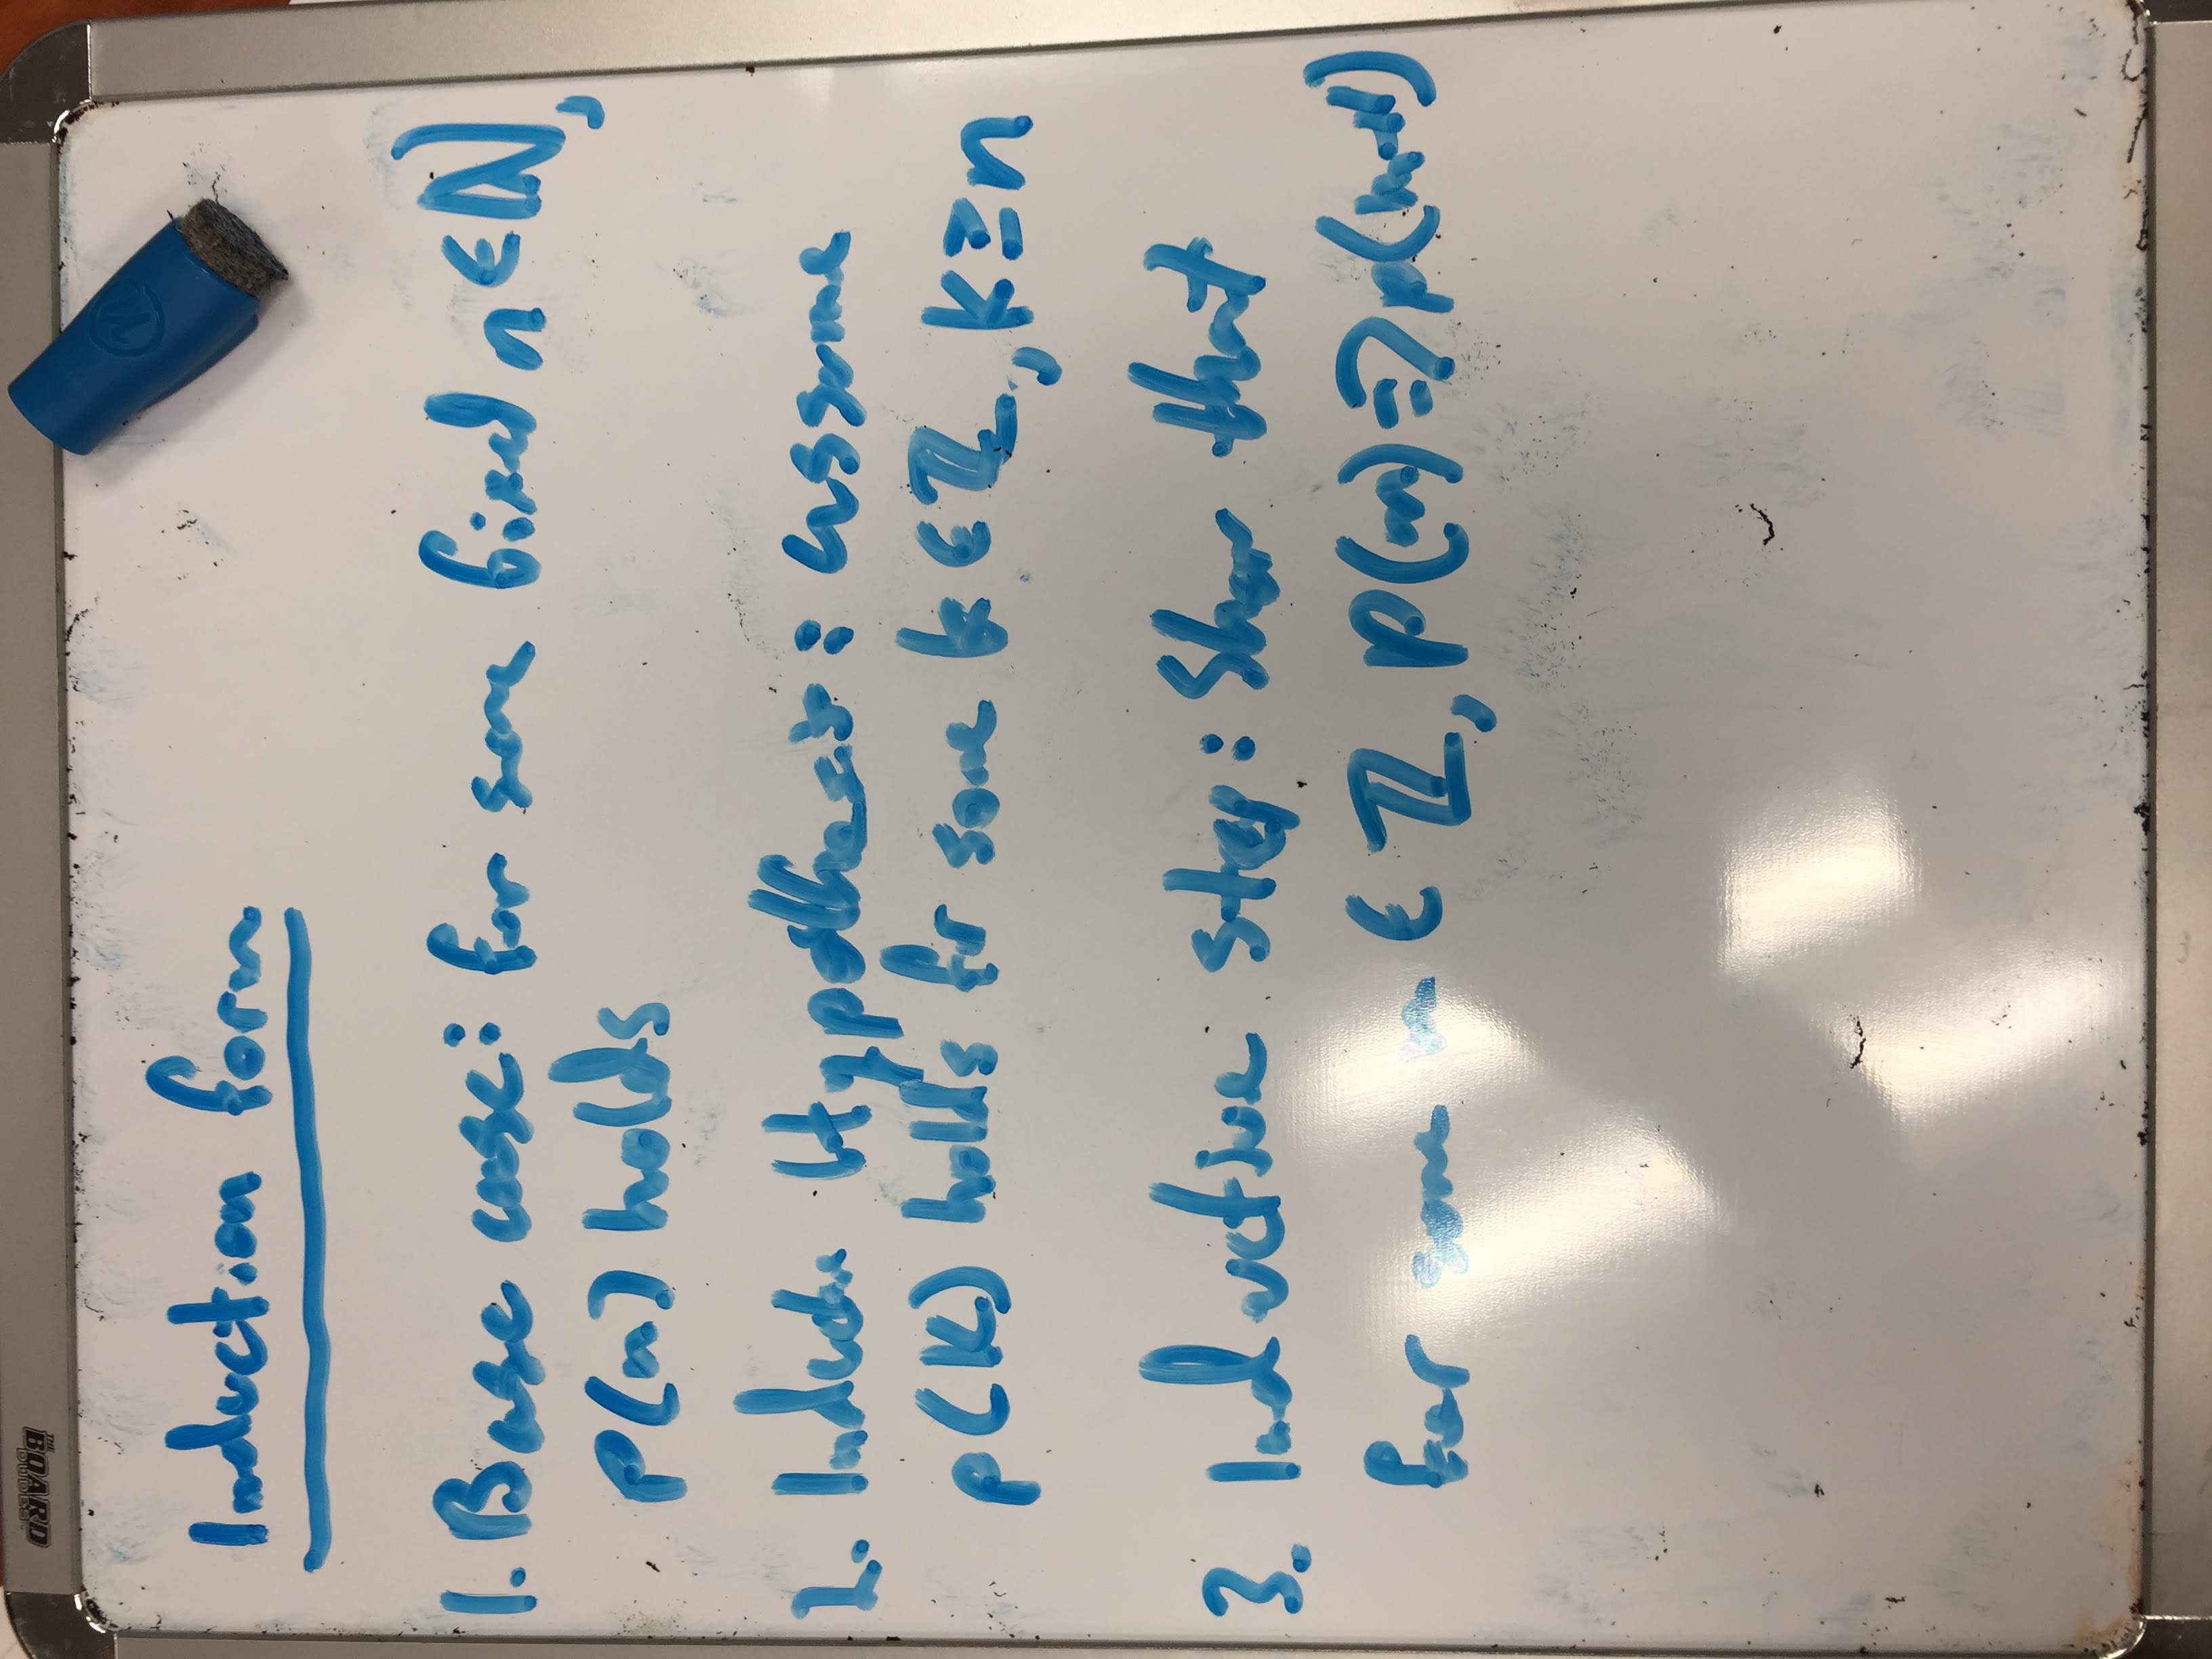 THE BOARD DUDES
Induction form
1. Base case: for some fixed n ∈ ℕ,
P(n) holds
2. Inductive Hypothesis: assume
P(k) holds for some k ∈ ℤ, k ≥ n
3. Inductive step: Show that
for some m ∈ ℤ, P(m) ⇒ P(m+1)